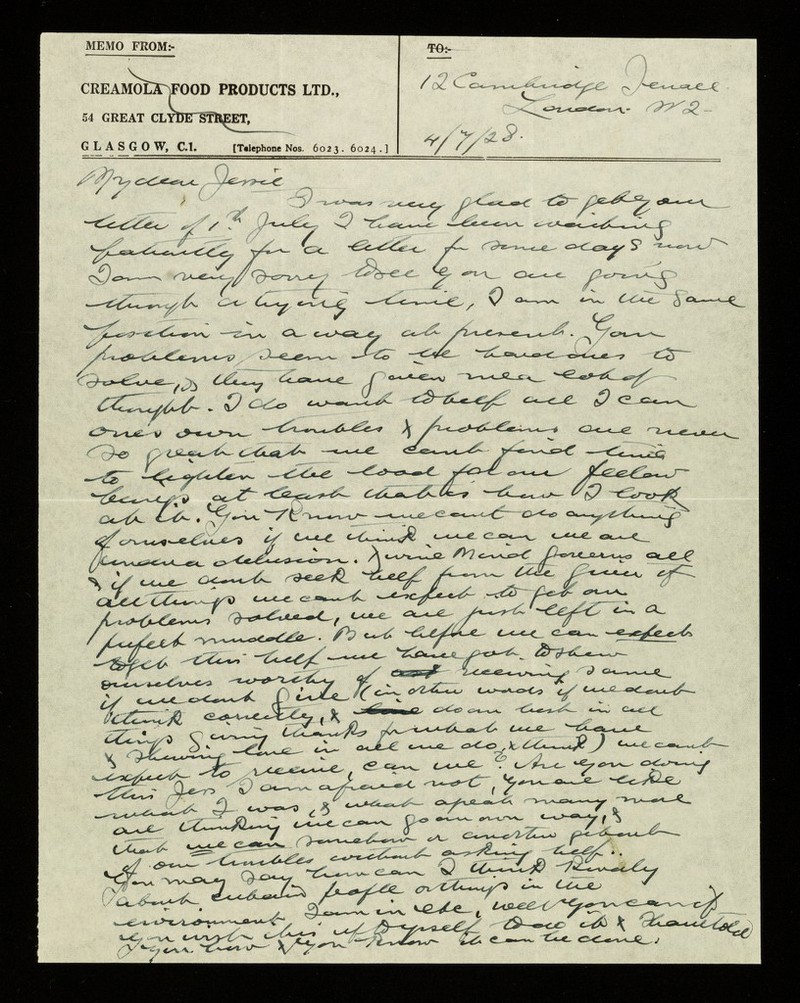 MEMO FROM:-
CREAMOLA FOOD PRODUCTS LTD.,
54 GREAT CLYDE STREET,
GLASGOW, C.1. [Telephone Nos. 6023. 6024.]
TO:-
12 Cambridge Terrace
London W2-
4/7/28.
My dear Jessie
I was very glad to get your
letter of 1th July I have been waiting
patiently for a letter for some days now
I am very sorry to see you are going
through a trying time, I am in the same
position in a way at present. Your
problems seem to be hard ones to
solve, & they have given me a lot of
thought. I do want to help all I can
ones own troubles & problems are never
so great that we cant find time
to lighten the load for our feelow
beings at least that is how I look
at it. You know we cant do anything
of ourselves if we think we can we are
under a delusion. Divine Mind governs all
& if we dont seek help from the giver of
all things we cant expect to get our
problems solved, we are just left in a
perfect muddle. But before we can expect
to get this help we have got to shew
ourselves worthy of receiving same
if we dont give (in other words if we dont
think correctly, & do our best in all
things giving thanks for what we have
& shewing love in all we do, & think) we cant
expect to receive, can we? Are you doing
this Jess I am afraid not, you are like
what I was, & what a great many more
are thinking we can go our own way, &
that we can somehow or another get out
of our troubles without asking help..
You may say how can I think kindly
about certain people or things in the
environment I am in etc, well you can if
you wish this is up to yourself to do it & I have told
you how & you know it can be done.